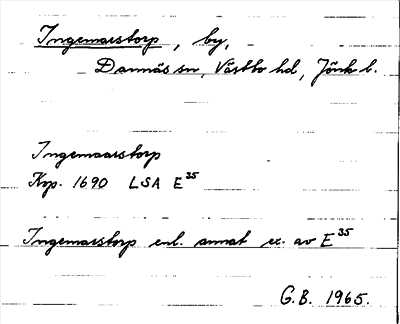 Ingemarstorp, by,
Dannäs sn, Västbo hd, Jönk l.
Ingemaarstorp
Kop. 1690 LSA E 35
Ingemarstorp enl. annat ex. av E 35
G.B. 1965.